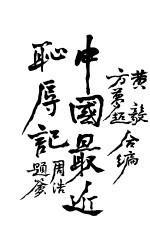 黄毅
方夢超
合編
中國最近
恥辱記
周浩
題簽